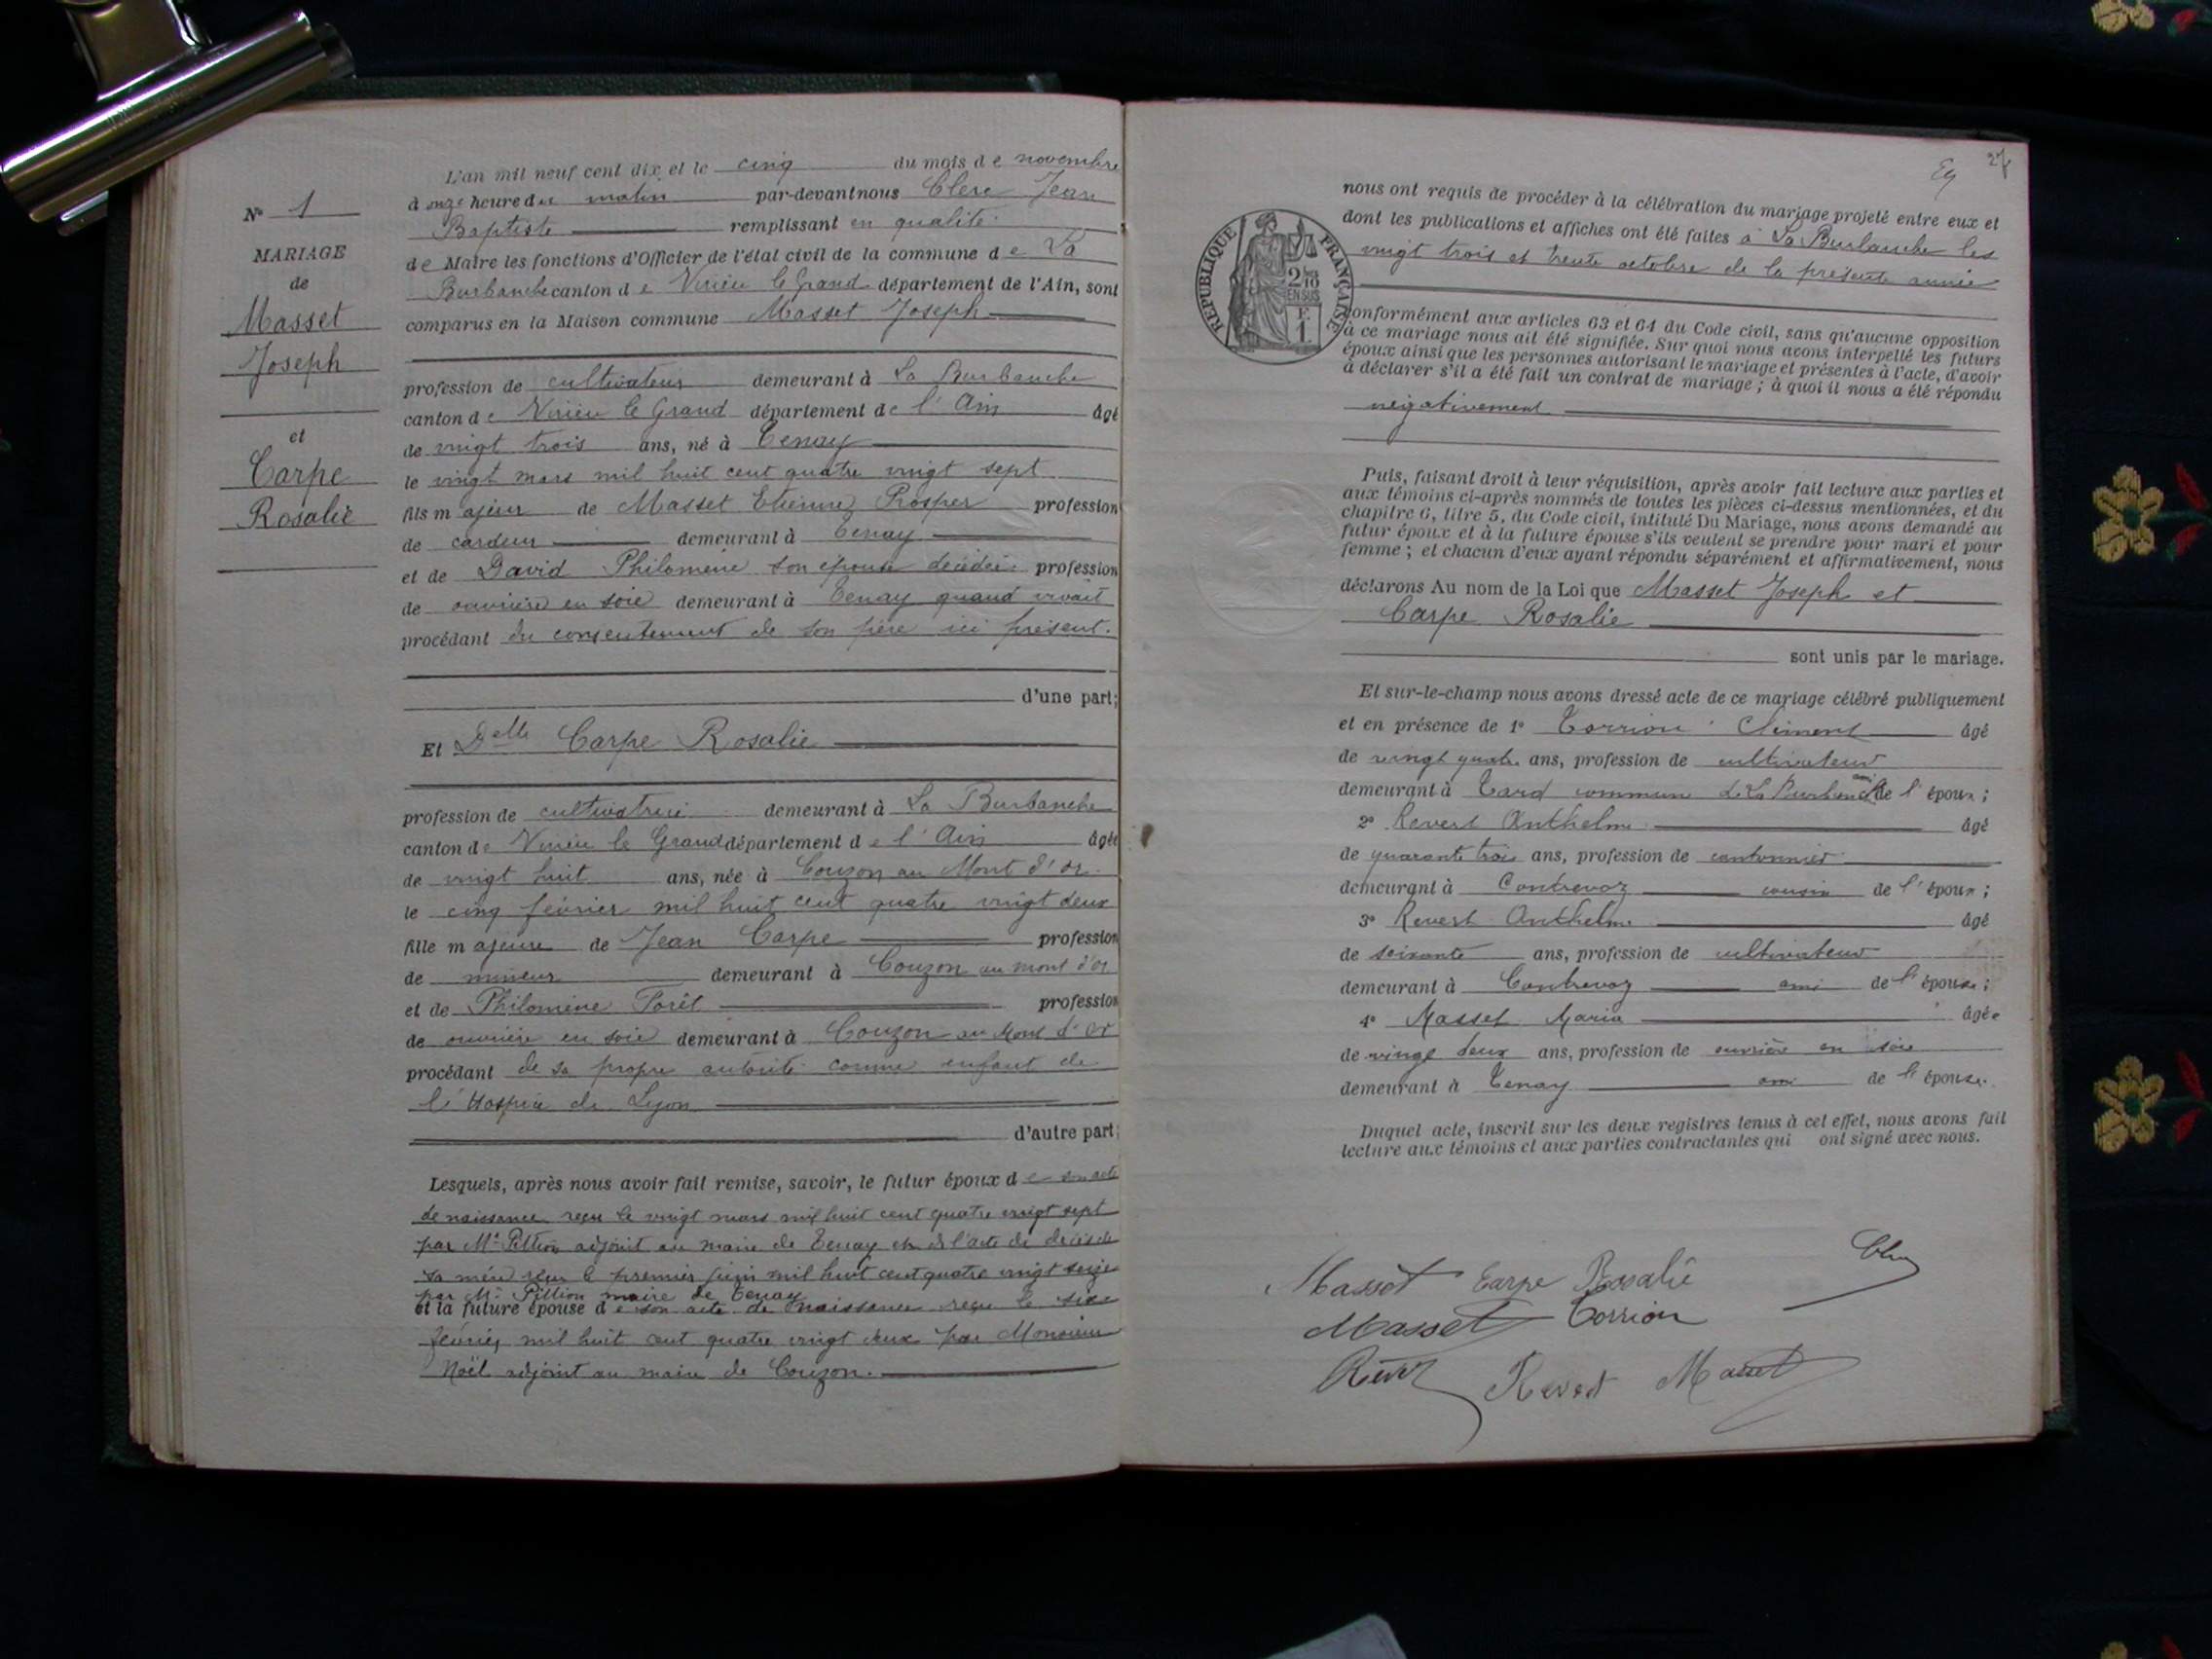 N° 1
MARIAGE
de
Masset
Joseph
et
Carpe
Rosalie
L'an mil neuf cent dix et le cinq du mois de novembre
à onze heure du matin par-devant nous Clerc Jean
Baptiste remplissant en qualité
de Maire les fonctions d'Officier de l'état civil de la commune de La
Burbanche canton de Virieu le Grand département de l'Ain, sont
comparus en la Maison commune Masset Joseph
profession de cultivateur demeurant à La Burbanche
canton de Virieu le Grand département de l'Ain âgé
de vingt trois ans, né à Tenay
le vingt mars mil huit cent quatre vingt sept
fils majeur de Masset Etienne Prosper profession
de cardeur demeurant à Tenay
et de David Philomène son épouse décédée profession
de ouvrière en soie demeurant à Tenay quand vivait
procédant du consentement de son père ici présent.
d'une part;
Et Delle Carpe Rosalie
profession de cultivatrice demeurant à La Burbanche
canton de Virieu le Grand département de l'Ain âgée
de vingt huit ans, née à Couzon au Mont d'or
le cinq février mil huit cent quatre vingt deux
fille majeure de Jean Carpe profession
de mineur demeurant à Couzon au mont d'or
et de Philomène Forêt profession
de ouvrière en soie demeurant à Couzon au Mont d'or
procédant de sa propre autorité comme enfant de
l'Hospice de Lyon
d'autre part;
Lesquels, après nous avoir fait remise, savoir, le futur époux de son acte
de naissance reçu le vingt mars mil huit cent quatre vingt sept
par Mr Pittion adjoint au maire de Tenay et de l'acte de décès de
sa mère reçu le premier juin mil huit cent quatre vingt seize
par Mr Pittion maire de Tenay
et la future épouse de son acte de naissance reçu le six
février mil huit cent quatre vingt deux par Monsieur
Noël adjoint au maire de Couzon.
27
RÉPUBLIQUE FRANÇAISE
2/10
EN SUS
F.
1
nous ont requis de procéder à la célébration du mariage projeté entre eux et
dont les publications et affiches ont été faites à La Burbanche les
vingt trois et trente octobre de la présente année
conformément aux articles 63 et 64 du Code civil, sans qu'aucune opposition
à ce mariage nous ait été signifiée. Sur quoi nous avons interpellé les futurs
époux ainsi que les personnes autorisant le mariage et présentes à l'acte, d'avoir
à déclarer s'il a été fait un contrat de mariage ; à quoi il nous a été répondu
négativement
Puis, faisant droit à leur réquisition, après avoir fait lecture aux parties et
aux témoins ci-après nommés de toutes les pièces ci-dessus mentionnées, et du
chapitre 6, titre 5, du Code civil, intitulé Du Mariage, nous avons demandé au
futur époux et à la future épouse s'ils veulent se prendre pour mari et pour
femme ; et chacun d'eux ayant répondu séparément et affirmativement, nous
déclarons Au nom de la Loi que Masset Joseph et
Carpe Rosalie
sont unis par le mariage.
Et sur-le-champ nous avons dressé acte de ce mariage célébré publiquement
et en présence de 1° Torrion Climent âgé
de vingt quatre ans, profession de cultivateur
demeurant à Tard commune de La Burbanche ami de l'époux ;
2° Revert Anthelme âgé
de quarante trois ans, profession de cantonnier
demeurant à Contrevoz cousin de l'époux ;
3° Revert Anthelme âgé
de soixante ans, profession de cultivateur
demeurant à Contrevoz ami de l'épouse ;
4° Masset Maria âgée
de vingt deux ans, profession de ouvrière en soie
demeurant à Tenay ami de l'épouse.
Duquel acte, inscrit sur les deux registres tenus à cet effet, nous avons fait
lecture aux témoins et aux parties contractantes qui ont signé avec nous.
Masset Carpe Rosalie
Masset Torrion
Revert Masset